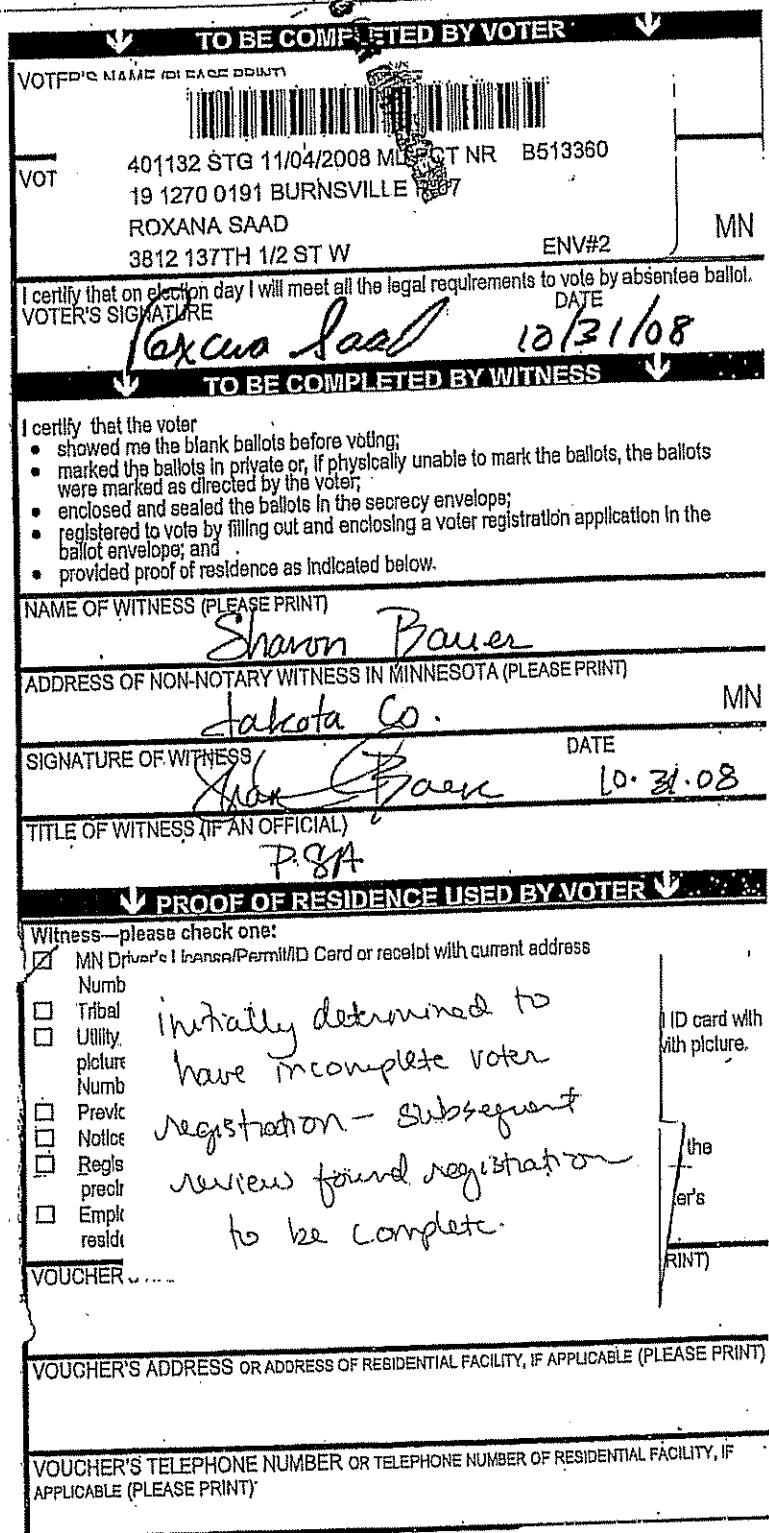 TO BE COMPLETED BY VOTER
VOTER'S NAME (PLEASE PRINT)
401132 STG 11/04/2008 NR B513360
VOT 19 1270 0191 BURNSVILLE
ROXANA SAAD
3812 137TH 1/2 ST W ENV#2 MN
I certify that on election day I will meet all the legal requirements to vote by absentee ballot.
VOTER'S SIGNATURE DATE
Saad 10/31/08
TO BE COMPLETED BY WITNESS
I certify that the voter
• showed me the blank ballots before voting;
• marked the ballots in private or, if physically unable to mark the ballots, the ballots
were marked as directed by the voter;
• enclosed and sealed the ballots in the secrecy envelope;
• registered to vote by filling out and enclosing a voter registration application in the
ballot envelope; and
• provided proof of residence as indicated below.
NAME OF WITNESS (PLEASE PRINT)
Sharon Bauer
ADDRESS OF NON-NOTARY WITNESS IN MINNESOTA (PLEASE PRINT)
dakota Co. MN
SIGNATURE OF WITNESS DATE
10.31.08
TITLE OF WITNESS (IF AN OFFICIAL)
PROOF OF RESIDENCE USED BY VOTER
Witness—please check one:
MN Driver's License/Permit/ID Card or receipt with current address
Numb
Tribal initially determined to ID card with
Utility with picture.
picture have incomplete voter
Numb
Previc registration - subsequent
Notice the
Regis review found registration
precin er's
Emplo to be complete.
reside
VOUCHER RINT)
VOUCHER'S ADDRESS OR ADDRESS OF RESIDENTIAL FACILITY, IF APPLICABLE (PLEASE PRINT)
VOUCHER'S TELEPHONE NUMBER OR TELEPHONE NUMBER OF RESIDENTIAL FACILITY, IF
APPLICABLE (PLEASE PRINT)